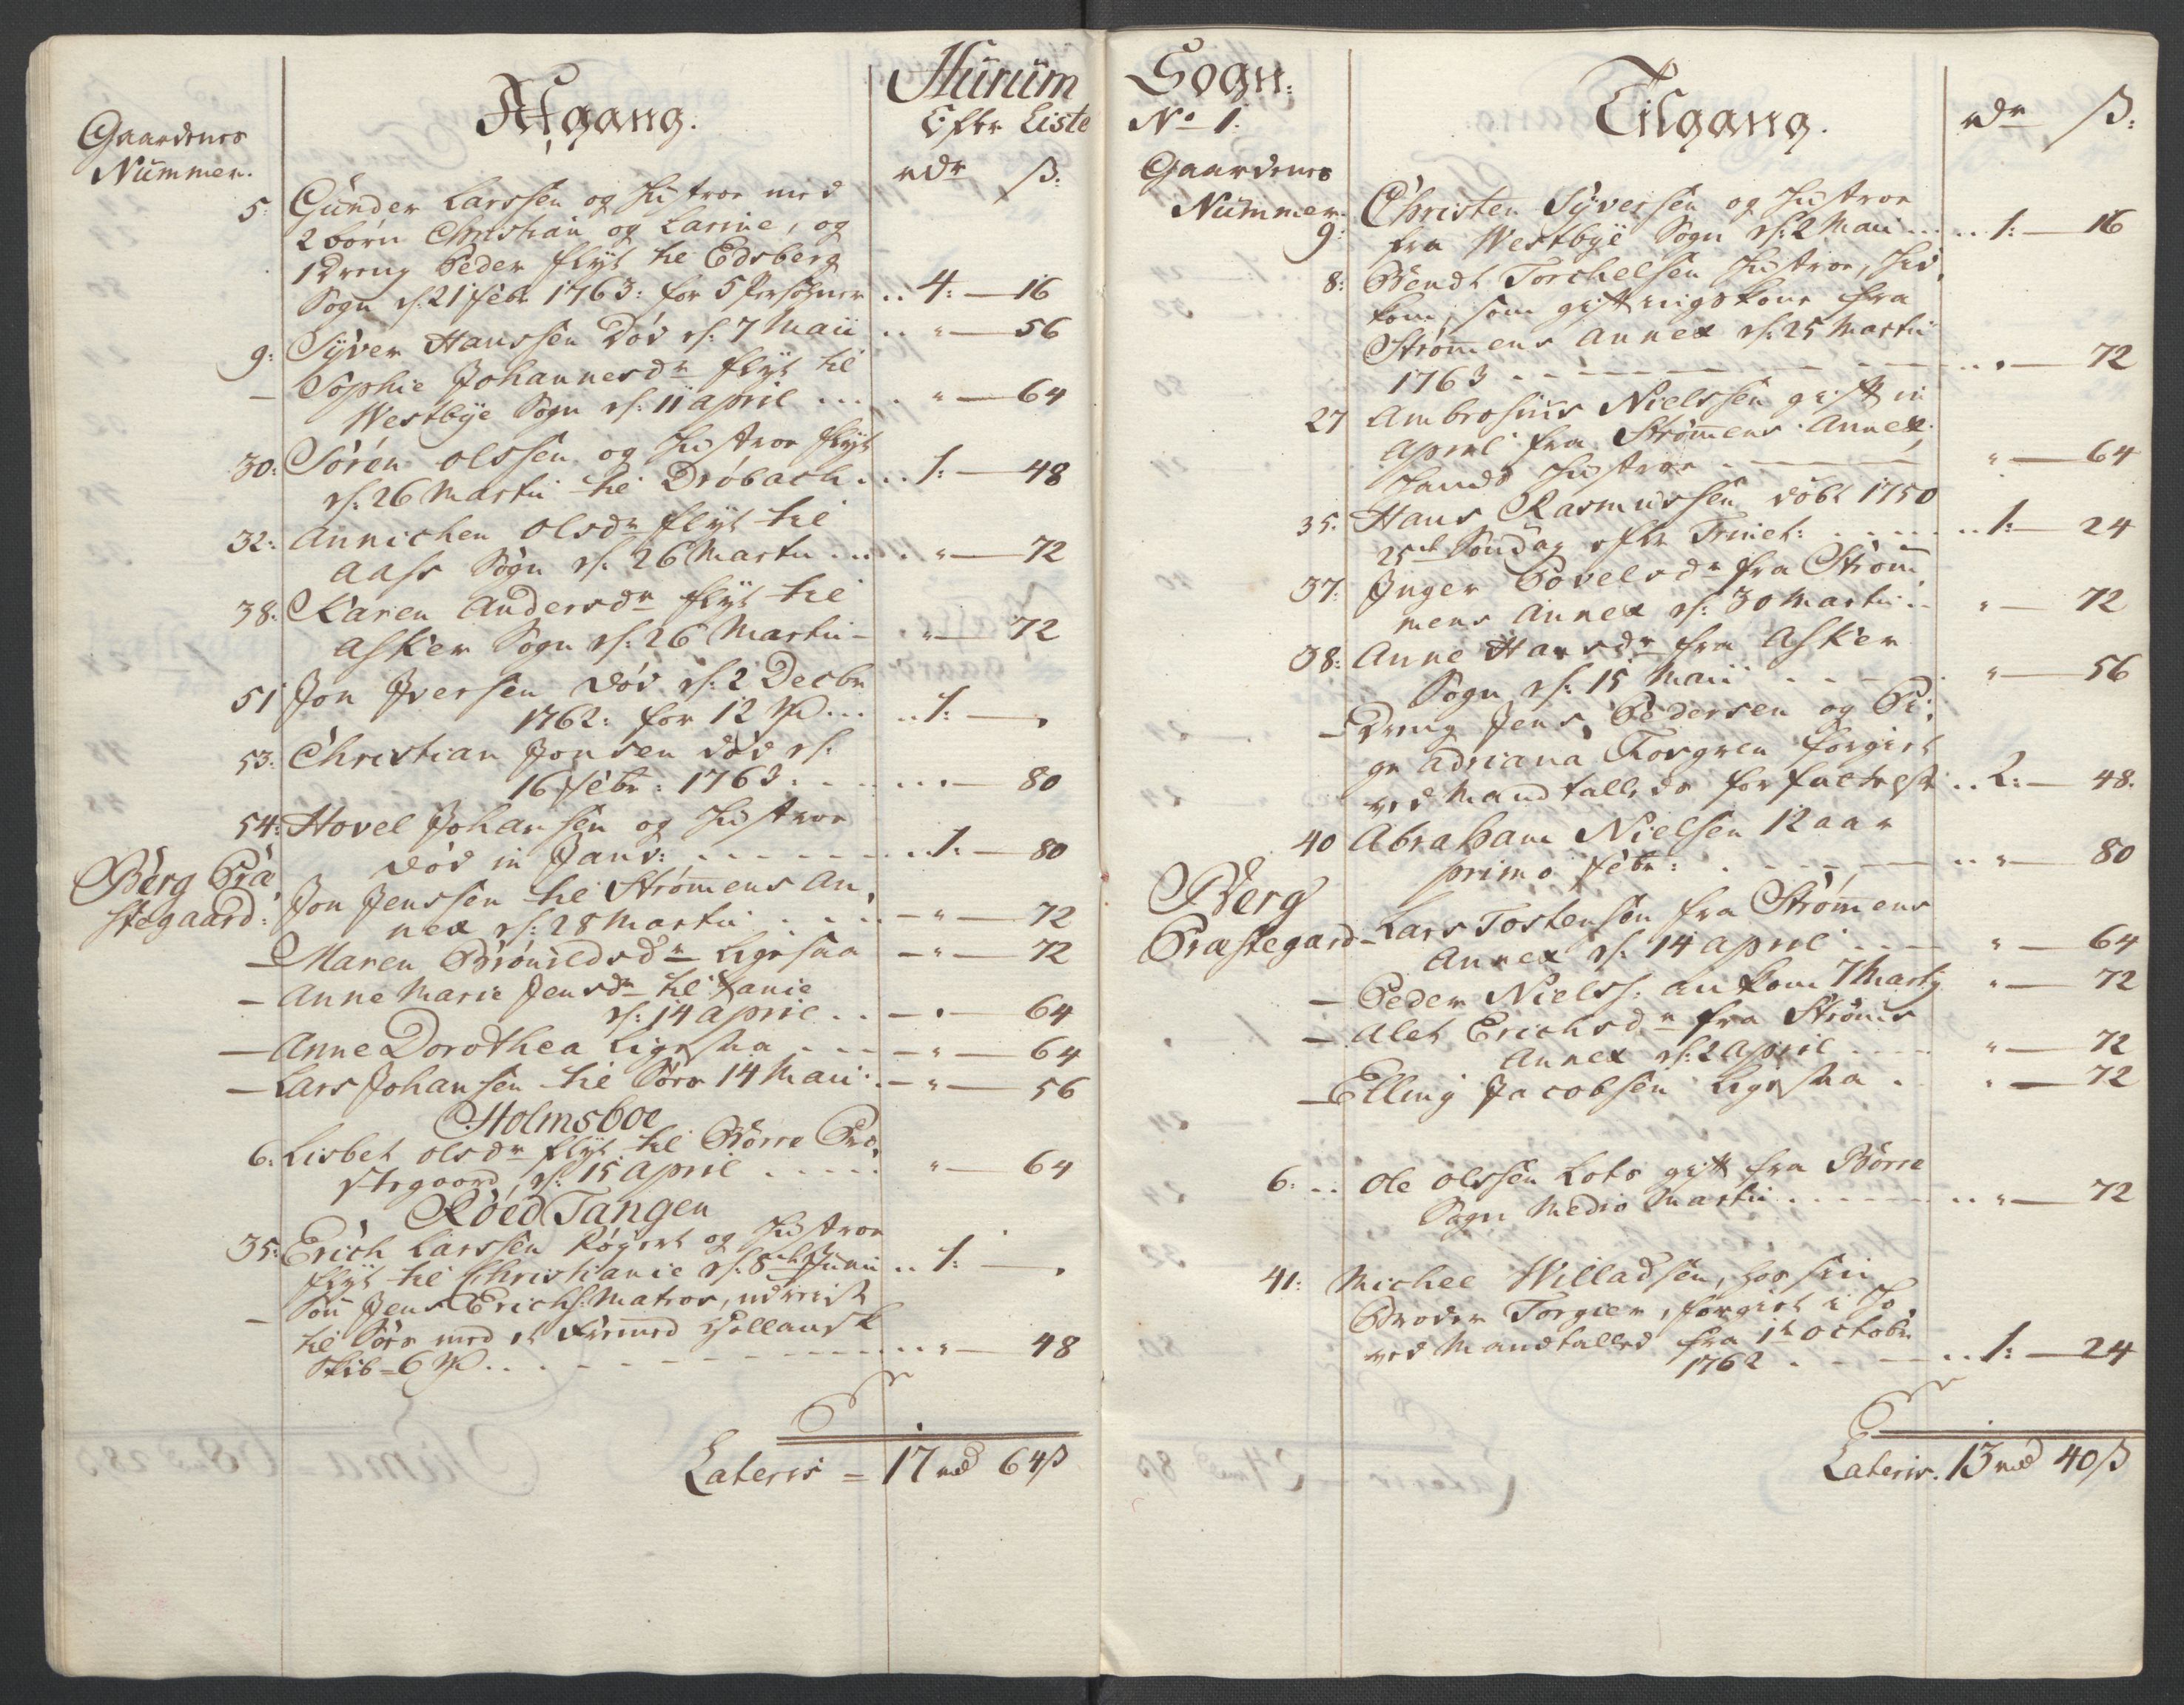 Hurum
Afgang.
Efter Liste
Gaardenes
Nummer.
rdr ß:
5: Gunder Larssen og Hustroe med
2 börn Christian og Larine, og
1 Dreng Peder flÿt til Edsberg
Sogn d: 21 febr 1763: for 5 Persohner .. 4: — 16
9: Sÿver Hanssen död d: 7 Maii .. " — 56
— Sophie Johannesdr flÿt til
Westbÿe Sogn d: 11 april .... " — 64
30: Sören olssen og Hustroe flÿt
d: 26 Martii til Dröbach ... 1: — 48
32: Annichen olsdr flÿt til
Aass Sogn d: 26 Martii .... " — 72
38: Karen Andersdr flÿt til
Asker Sogn d: 26 Martii — " — 72
51 Jon Iversen död d: 2 Decbr
1762: for 12 ... 1: — "
53: Christian Jonsen död d:
16 febr: 1763 .... " — 80
54: Hovel Johansen og Hustroe
död in Janv: ..... 1: — 80
Berg Præ
stegaard:
Jon Jenssen til Strömmens An,
nex d: 28 Martii .... — " — 72
— Maren Brönildsdr ligesaa — " — 72
— Anne Marie Jensdr til
d: 14 april .. — " — 64
— Anne Dorothea ligesaa ... — " — 64
— Lars Johansen til Söes 14 Maii. — " — 56
Holmsboe
6: Lisbet olsdr flÿt til Börre Præ,
stegaard, d: 15 april ..... " — 64
Röed Tangen
35: Erich Larssen Rögert og Hustroe
flÿt til Christianie d: 8de Junii .. 1: — "
— Sön Jens Erichs: Matros, udreist
til Söes med et fremmed Hollandsk
Skib = 6 ....... " — 48
Lateris = 17 rd 64 ß
Sogn:
No 1.
Tilgang.
rdr ß:
Gaardenes
Nummer.
9: Christen Sÿversen og Hustroe
fra Westbÿe Sogn d: 2 Maii .... 1: — 16
8: Bendt Torchelsen Hustroe, hid,
kom, som gift kone fra
Strömmens Annex d: 25 Martii
1763 ....... " — 72
27 Ambrosius Nielssen gift in
April fra Strömmens Annex,
hands Hustroe — " — 64
35. Hans Rasmussen döbt 1750
25de Söndag efter Trinit: ..... 1: — 24
37: Inger Povelsdr fra Ström
mens Annex d: 30 Martii .. " — 72
38: Anne Hansdr fra Asker
Sogn d: 15 Maii ... " — 56
— Dreng Jens Pedersen og Pi,
ge Adriana Torgren forgiet
ved Mandtallets forfattelse .. 2: — 48.
40 Abraham Nielsen 12 aar
primo febr: ..... " — 80
Berg
Præstegaard — Lars Tostensön fra Strömmens
Annex d: 14 april ... " — 64
— Peder Niels: ankom 7 Martij " — 72
— Alet Erichsdr fra Ströms
Annex d: 2 april .... " — 72
— Elling Jacobsen ligesaa . " — 72
6: .. Ole olssen Lots gift fra Börre
Sogn Medio Martii ....... " — 72
41: Michel Willadsen, hos sin
Broder Torgier, forgiet i
ved Mandtallet fra 1te octobr
1762 ..... 1: — 24
Lateris. 13 rd 40 ß